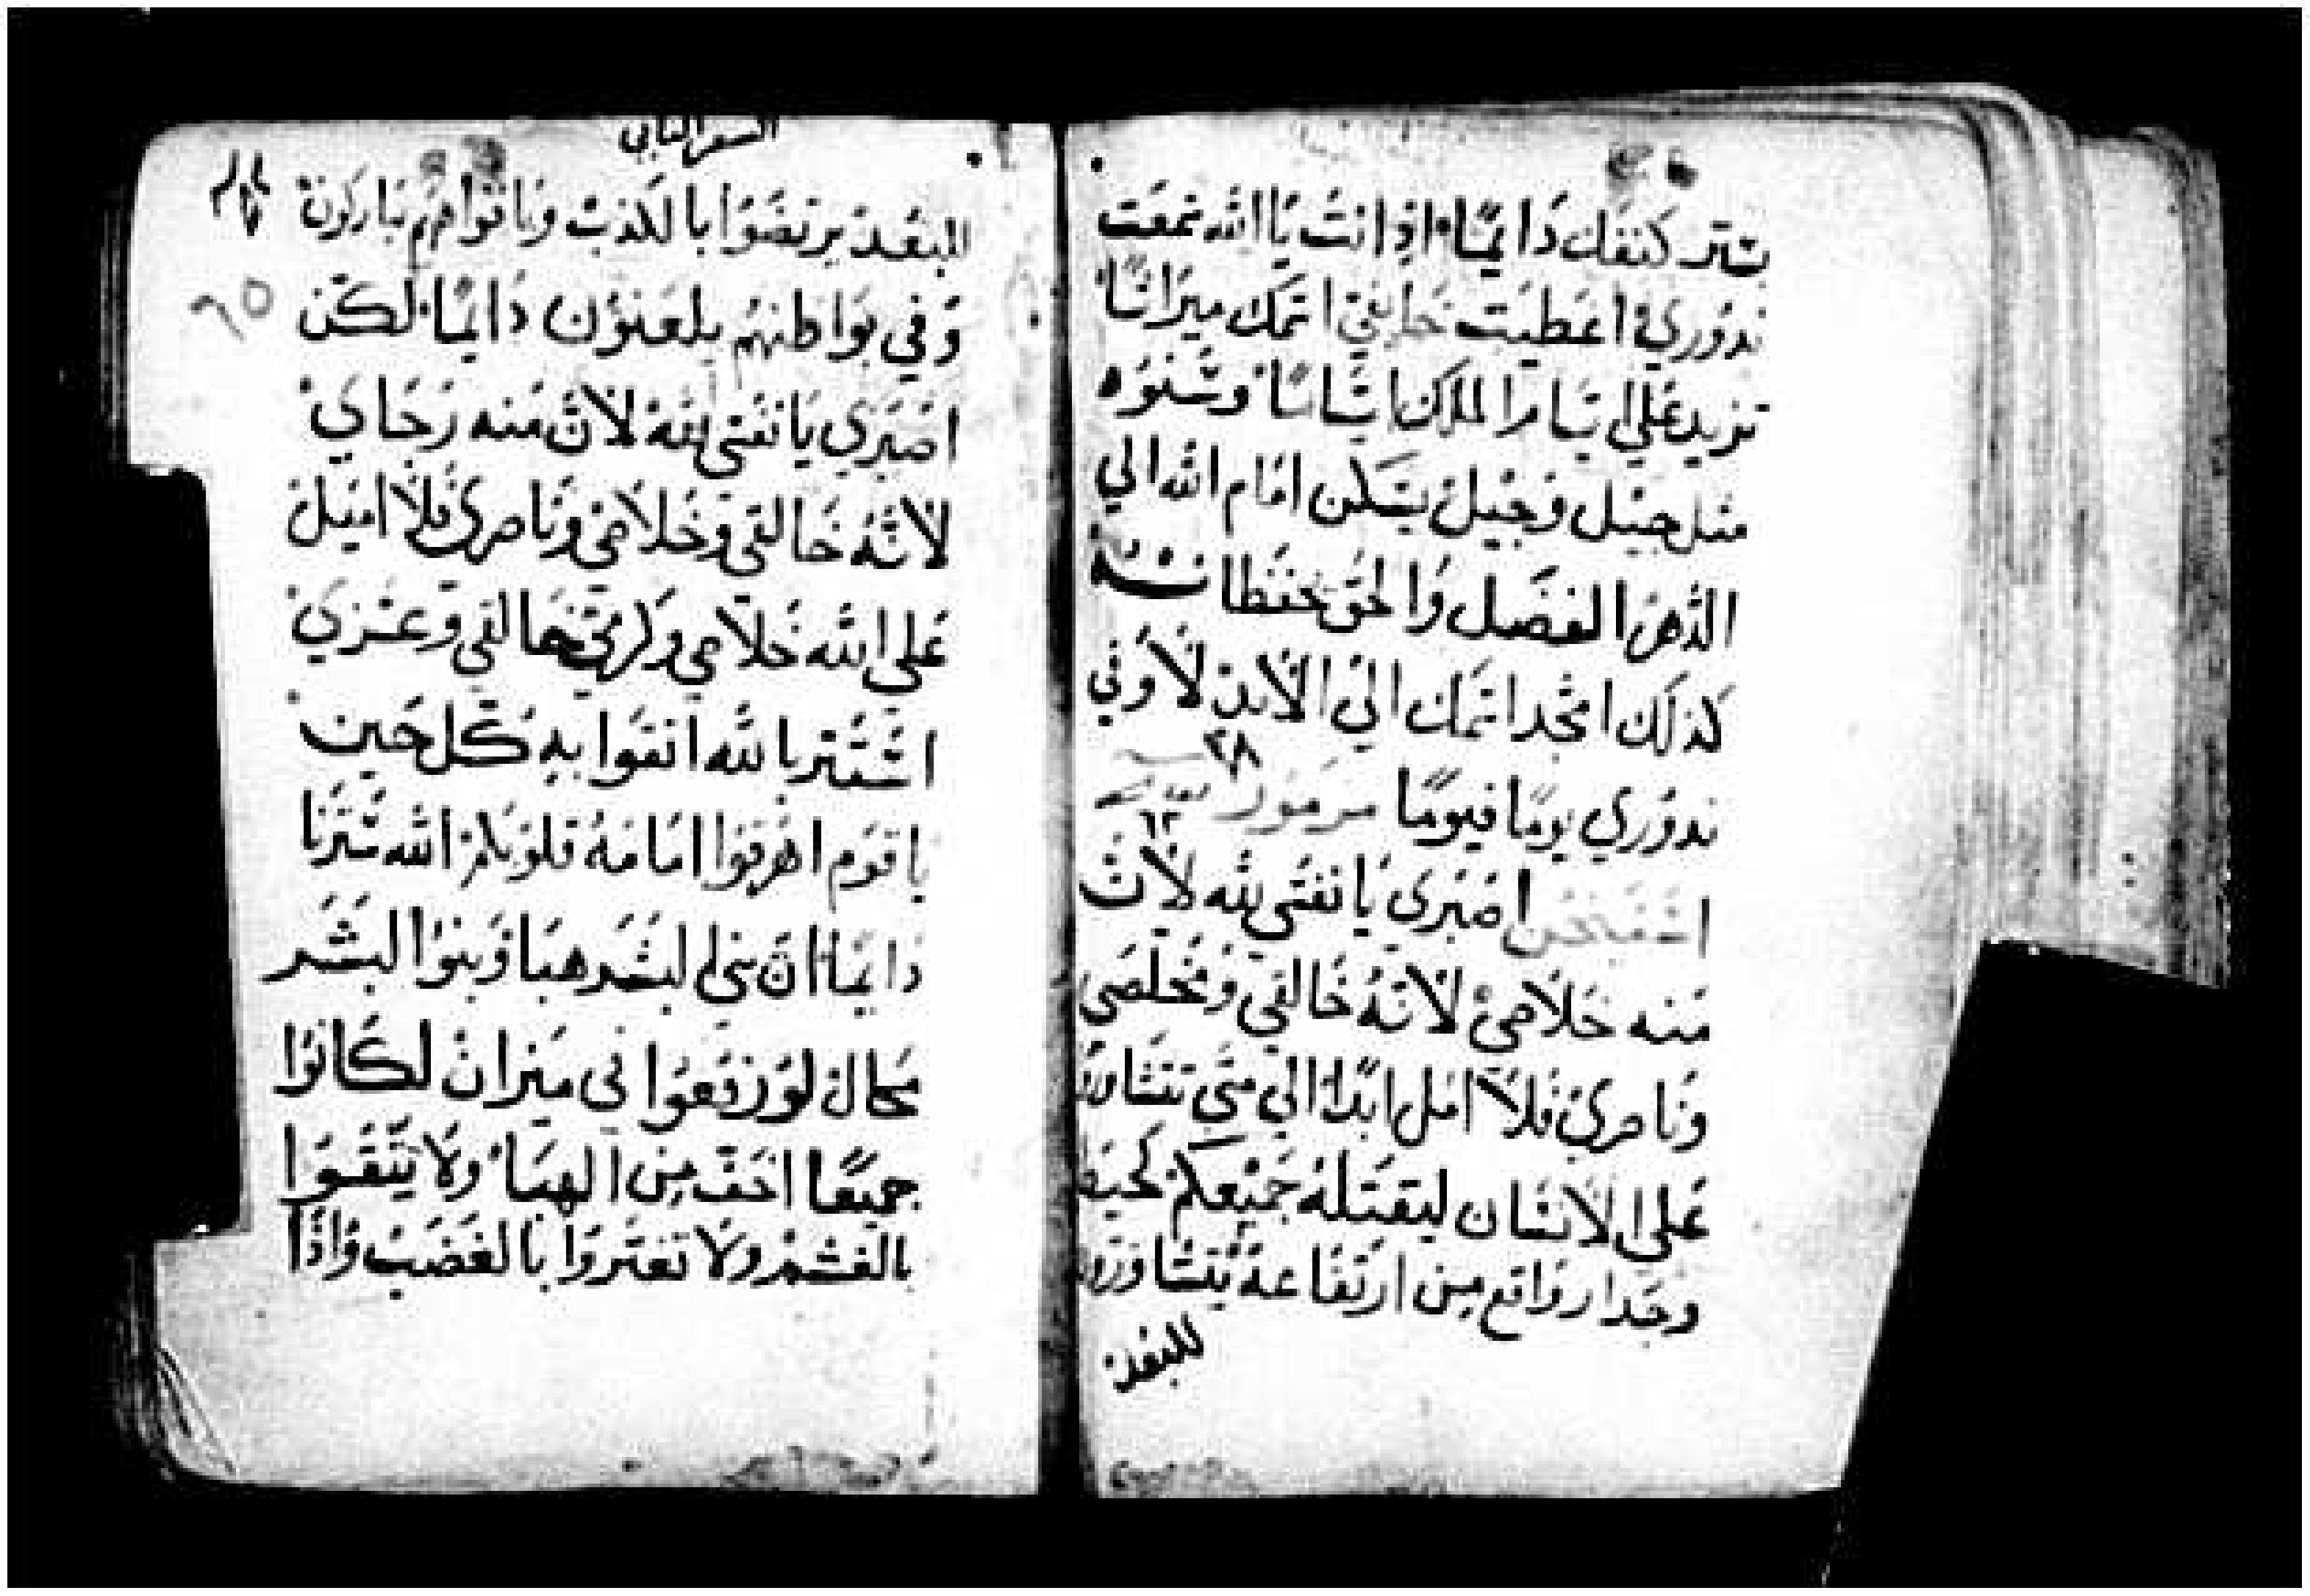 بستر كنفك دايمًا اذ انت يا الله سمعت
ندوري اعطيت خايفي اسمك ميراثًا
تزيد علي ايام الملك اياما وسنوه
مثل جيل وجيل يسكن امام الله الي
الدهر الفضل والحق حفظا
كذلك امجد اسمك الي الابد لاوفي
ندوري يومًا فيومًا مزمور
٦١
اصبري يا نفسي لله لان
منه خلاصي لانه خالقي ومخلصي
وناصري فلا امل ابدا الي متي
علي الانسان ليقتله جميعكم كحيط
وجدار واقع من ارتفاعه يتشاورون
للبعد
السفر الثاني
للبعد يرتضوا بالكذب وبافواههم يباركون
وفي بواطنهم يلعنون دايمًا لكن
٦٥
اصبري يا نفسي لله لان منه رجاي
لانه خالقي وخلاصي وناصري فلا اميل
علي الله خلاصي وكرامتي خالقي وعزي
استتر بالله اتقوا به كل حين
يا قوم اهرقوا امامه قلوبكم الله سترنا
دايمًا ان بني البشر هبا وبنوا البشر
محال لو رفعوا في ميزان لكانوا
جميعًا اخف من الهبا ولا يتقوا
بالغشم ولا تغتروا بالغضب واذا